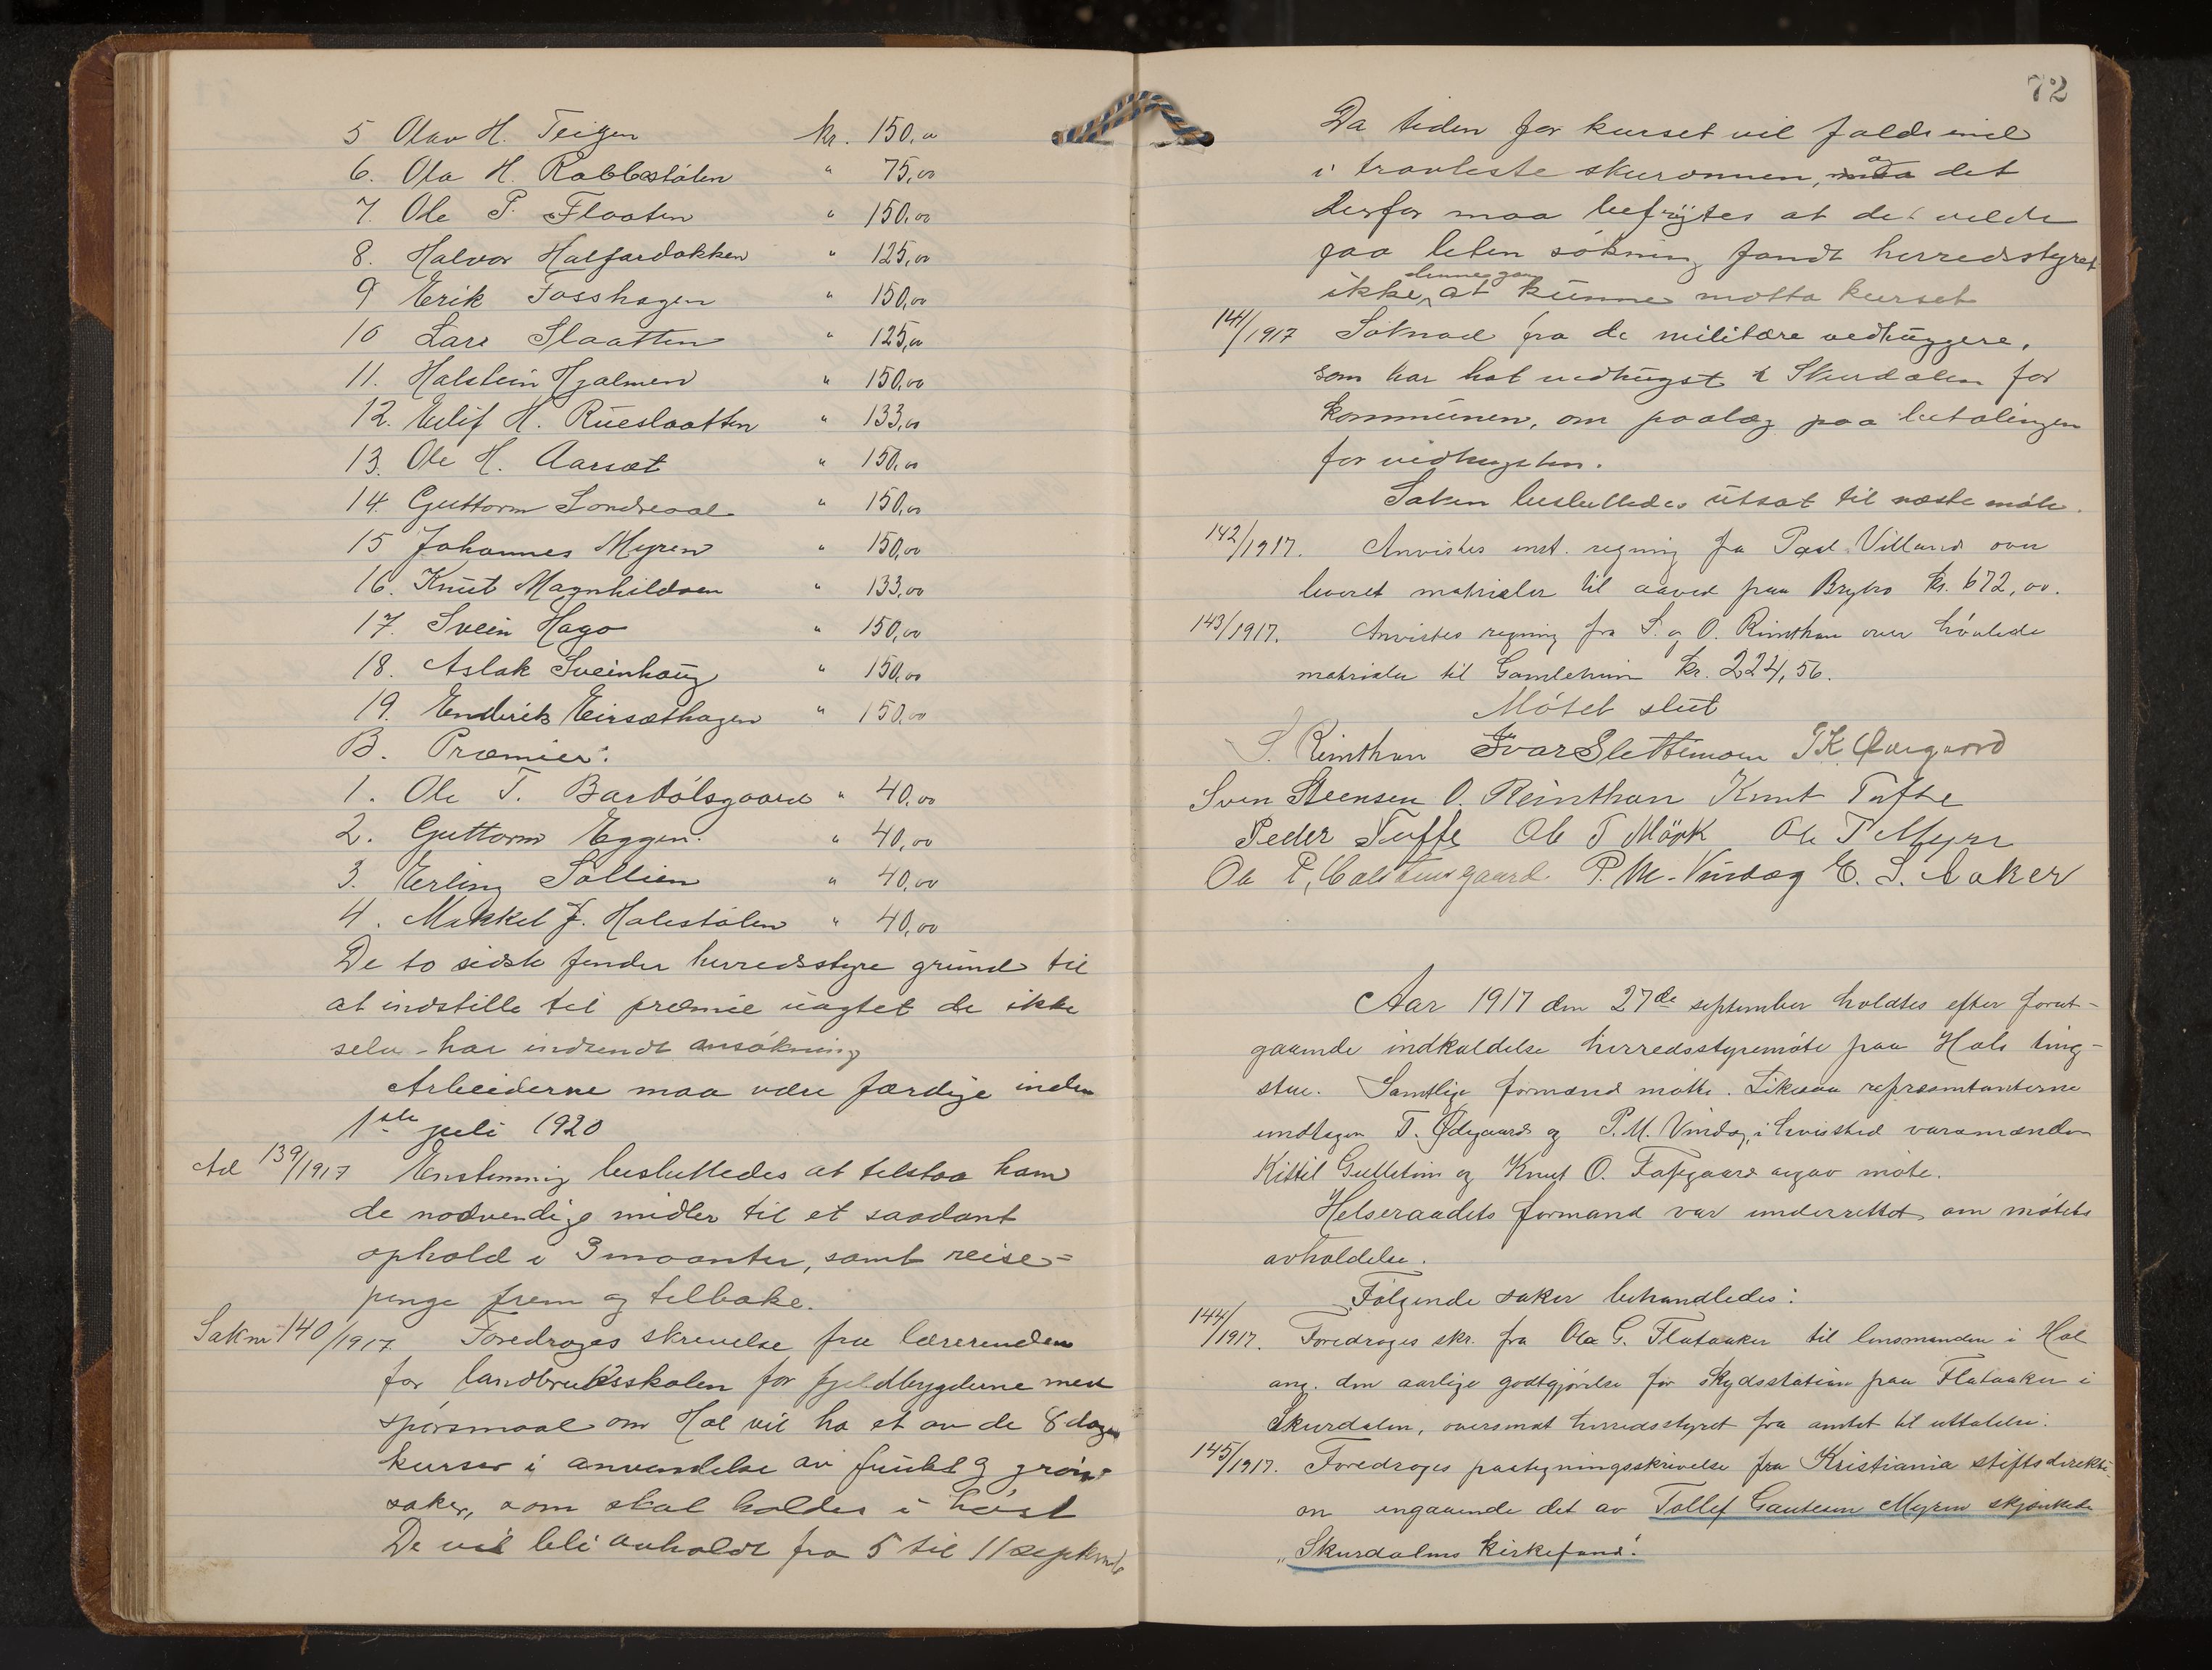 5 Olav H. Teigen kr. 150,00
6. Ola H. Rabbestølen " 75,00
7. Ole P. Flaaten " 150,00
8. Halvor Halfardokken " 125,00
9 Erik Fosshagen " 150,00
10 Lars Slaatten " 125,00
11. Halstein Hjalmen " 150,00
12. Eilif H. Rueslaatten " 133,00
13. Ole H. Aarset " 150,00
14. Guttorm Sondreaal " 150,00
15 Johannes Myren " 150,00
16. Knut Magnhildøen " 133,00
17. Svein Hago " 150,00
18. Aslak Sveinhaug " 150,00
19. Endrik Eirsæthagen " 150,00
B. Præmier:
1. Ole T. Bardølsgaard " 40,00
2. Guttorm Eggen. " 40,00
3. Erling Sollien " 40,00
4. Mikkel J. Holestølen " 40,00
De to sidste finder herredsstyre grund til
at indstille til præmie uagtet de ikke
selv har indsendt ansøkning
Arbeiderne maa være færdige inden
1ste juli 1920
Ad 139/1917 Enstemmig besluttedes at tilstaa ham
de nødvendige midler til et saadant
ophold i 3 maanter, samt reise=
penge frem og tilbake.
Sak nr 140/1917. Foredroges skrivelse fra lærerinden
for landbruksskolen for fjeldbygderne med
spørsmaal om Hol vil ha et av de 8 dages
kurser i anvendelse av frukt og grøn-
saker, som skal holdes i høst
De vil bli avholdt fra 5 til 11 septemb
72
Da tiden for kurset vil falde ind
i travleste skuronnen, og det
derfor maa befrygtes at det vilde
faa liten søkning fandt herredsstyret
ikke denne gang at kunne motta kurset
141/1917 Søknad fra de militære vedhuggere,
som har hat vedhugst i Skurdalen for
kommunen, om paalæg paa betalingen
for vedhugsten.
Saken besluttedes utsat til næste møte.
142/1917. Anvistes inst. regning fra Paul Villand over
leveret matrialer til aaved paa Brybro kr. 672,00.
143/1917. Anvistes regning fra S. og O. Reinthon over høvlede
matrialer til Gamleheim kr. 224,56.
Møtet slut
S. Reinthon Ivar Slettemoen T K Ødegaard
Sven Steensen O. Reinthon Knut Tufte
Peder Tuffe Ole T Mörk Ole T Myre
Ole P. Holstensgaard P. M. Vindeg E. S. Aaker
Aar 1917 den 27de september holdtes efter forut-
gaaende indkaldelse herredsstyremøte paa Hols ting-
stue. Samtlige formænd møtte. Likesaa repræsentanterne
undtagen T. Ødegaard og P. M. Vindeg, i hvis sted varamænden
Kittil Gulletein og Knut O. Tofsgaard avgav møte.
Helseraadets formand var underrettet om møtets
avholdelse.
Følgende saker behandledes:
144/1917. Foredroges skr. fra Ola G. Flataaker til lensmanden i Hol
ang. den aarlige godtgjørelse for skydsstation paa Flataaker i
Skurdalen, oversendt herredsstyret fra amtet til uttalelse.
145/1917. Foredroges paategningsskrivelse fra Kristiania stiftsdirekti-
on angaaende det av Tollef Gautesen Myren skjænkede
"Skurdalens kirkefond".